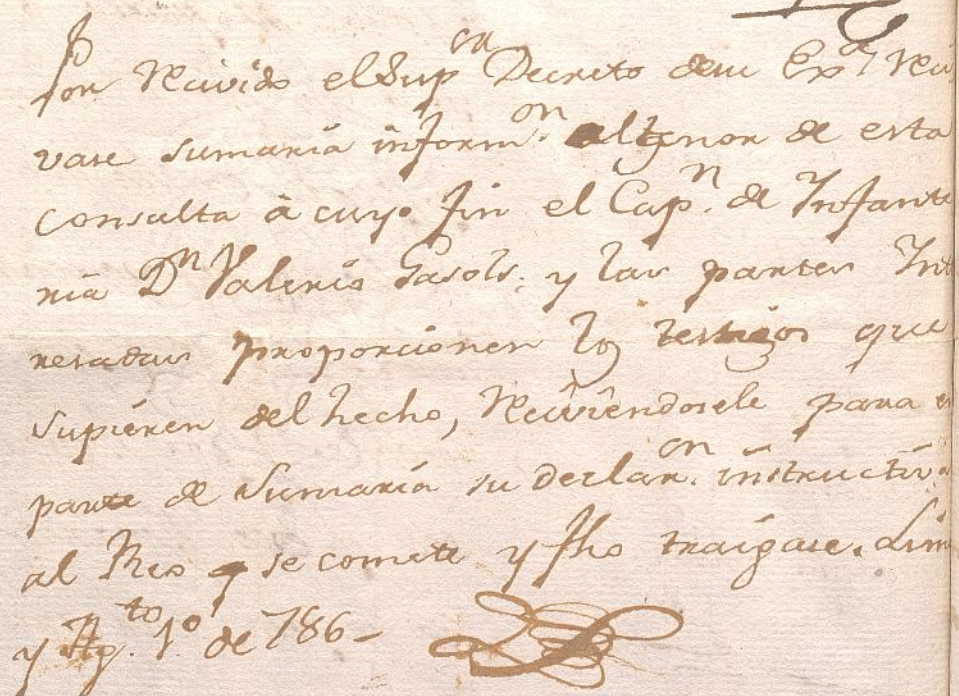 Por Recivido el Sup.or Decreto de su Ex.a Reci
vase sumaria inform.on al tenor de esta
consulta à cuyo fin el Cap.n de Infante
ria D.n Valerio Gasols; y las partes Inte
resadas proporcionen los testigos que
supieren del hecho, Reciviendosele para e
parte de Sumaria su declar.on instructiva
al Reo q se comete y fho traigase. Lim
y Ag.to 1.o de 786-